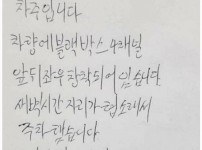 차주입니다
차량에블랙박스 4채널
앞뒤좌우 장착되어 있습니다.
새벽시간 자리가 협소해서
주차 했습니다